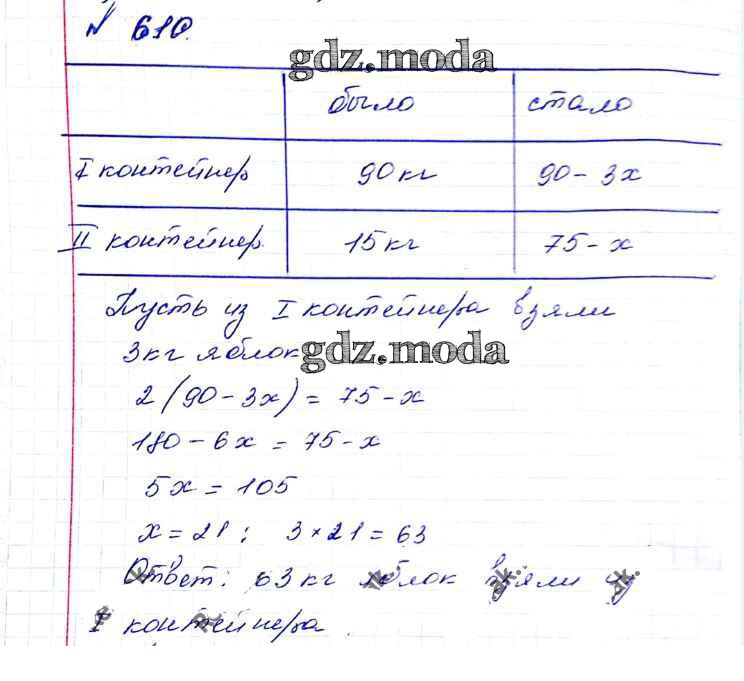 № 610.
gdz.moda
было стало
I контейнер 90 кг 90 - 3x
II контейнер. 15 кг 75 - x
Пусть из I контейнера взяли
3кг яблок
gdz.moda
2(90 - 3x) = 75 - x
180 - 6x = 75 - x
5x = 105
x = 21; 3 × 21 = 63
Ответ: 63 кг яблок взяли из
I контейнера.